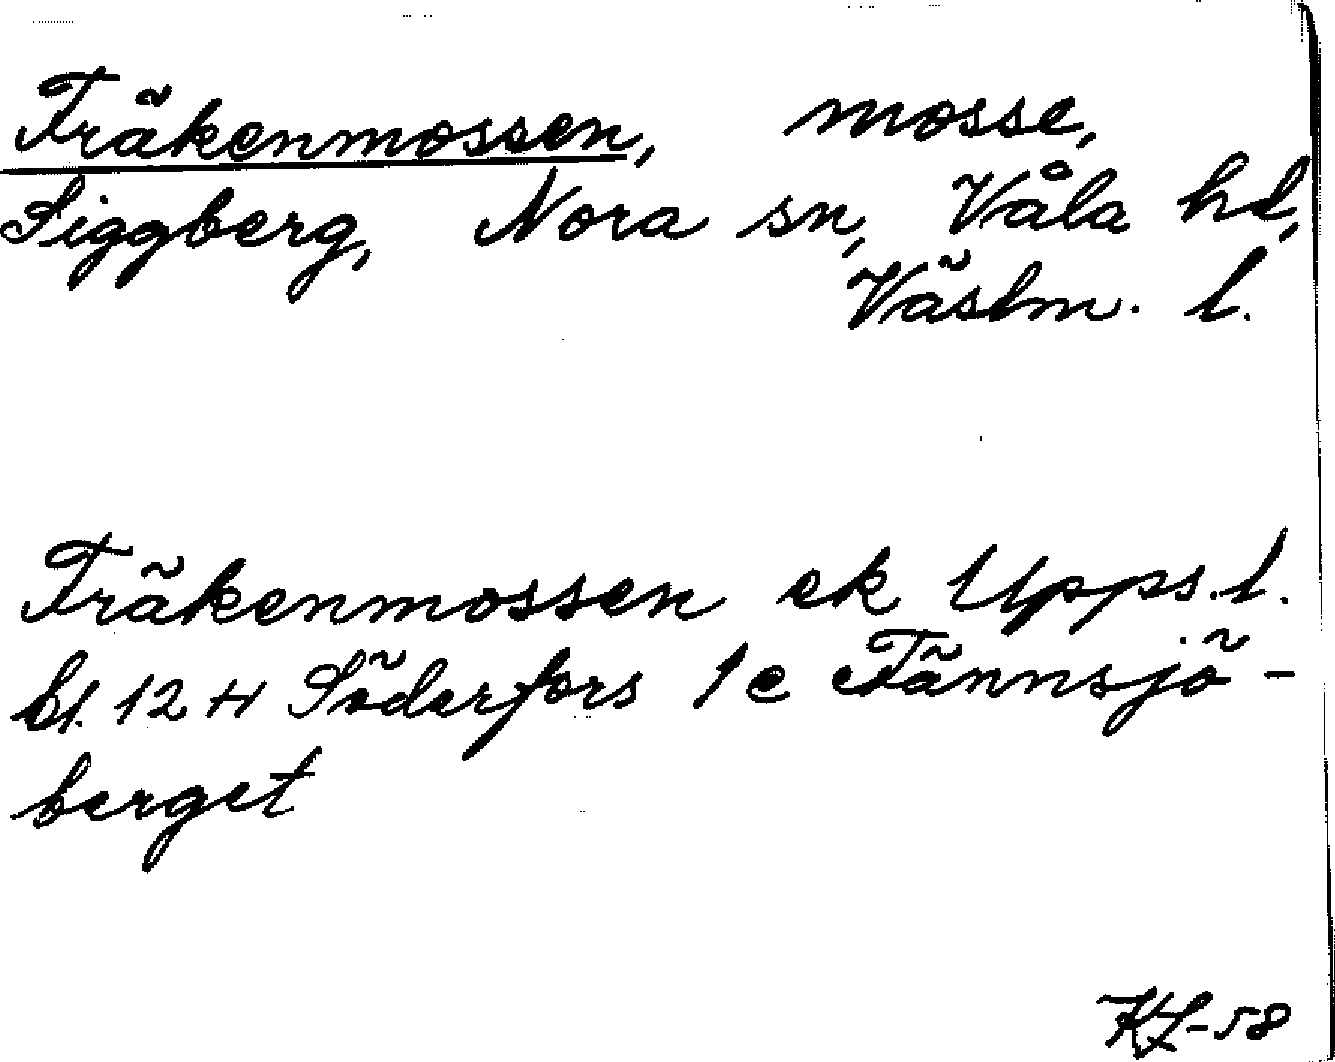 Fräkenmossen, mosse,
Siggberg, Nora sn, Våla hd,
Västm. l.
Fräkenmossen ek Upps. l.
bl. 12 H Söderfors 1 e Tännsjö-
berget